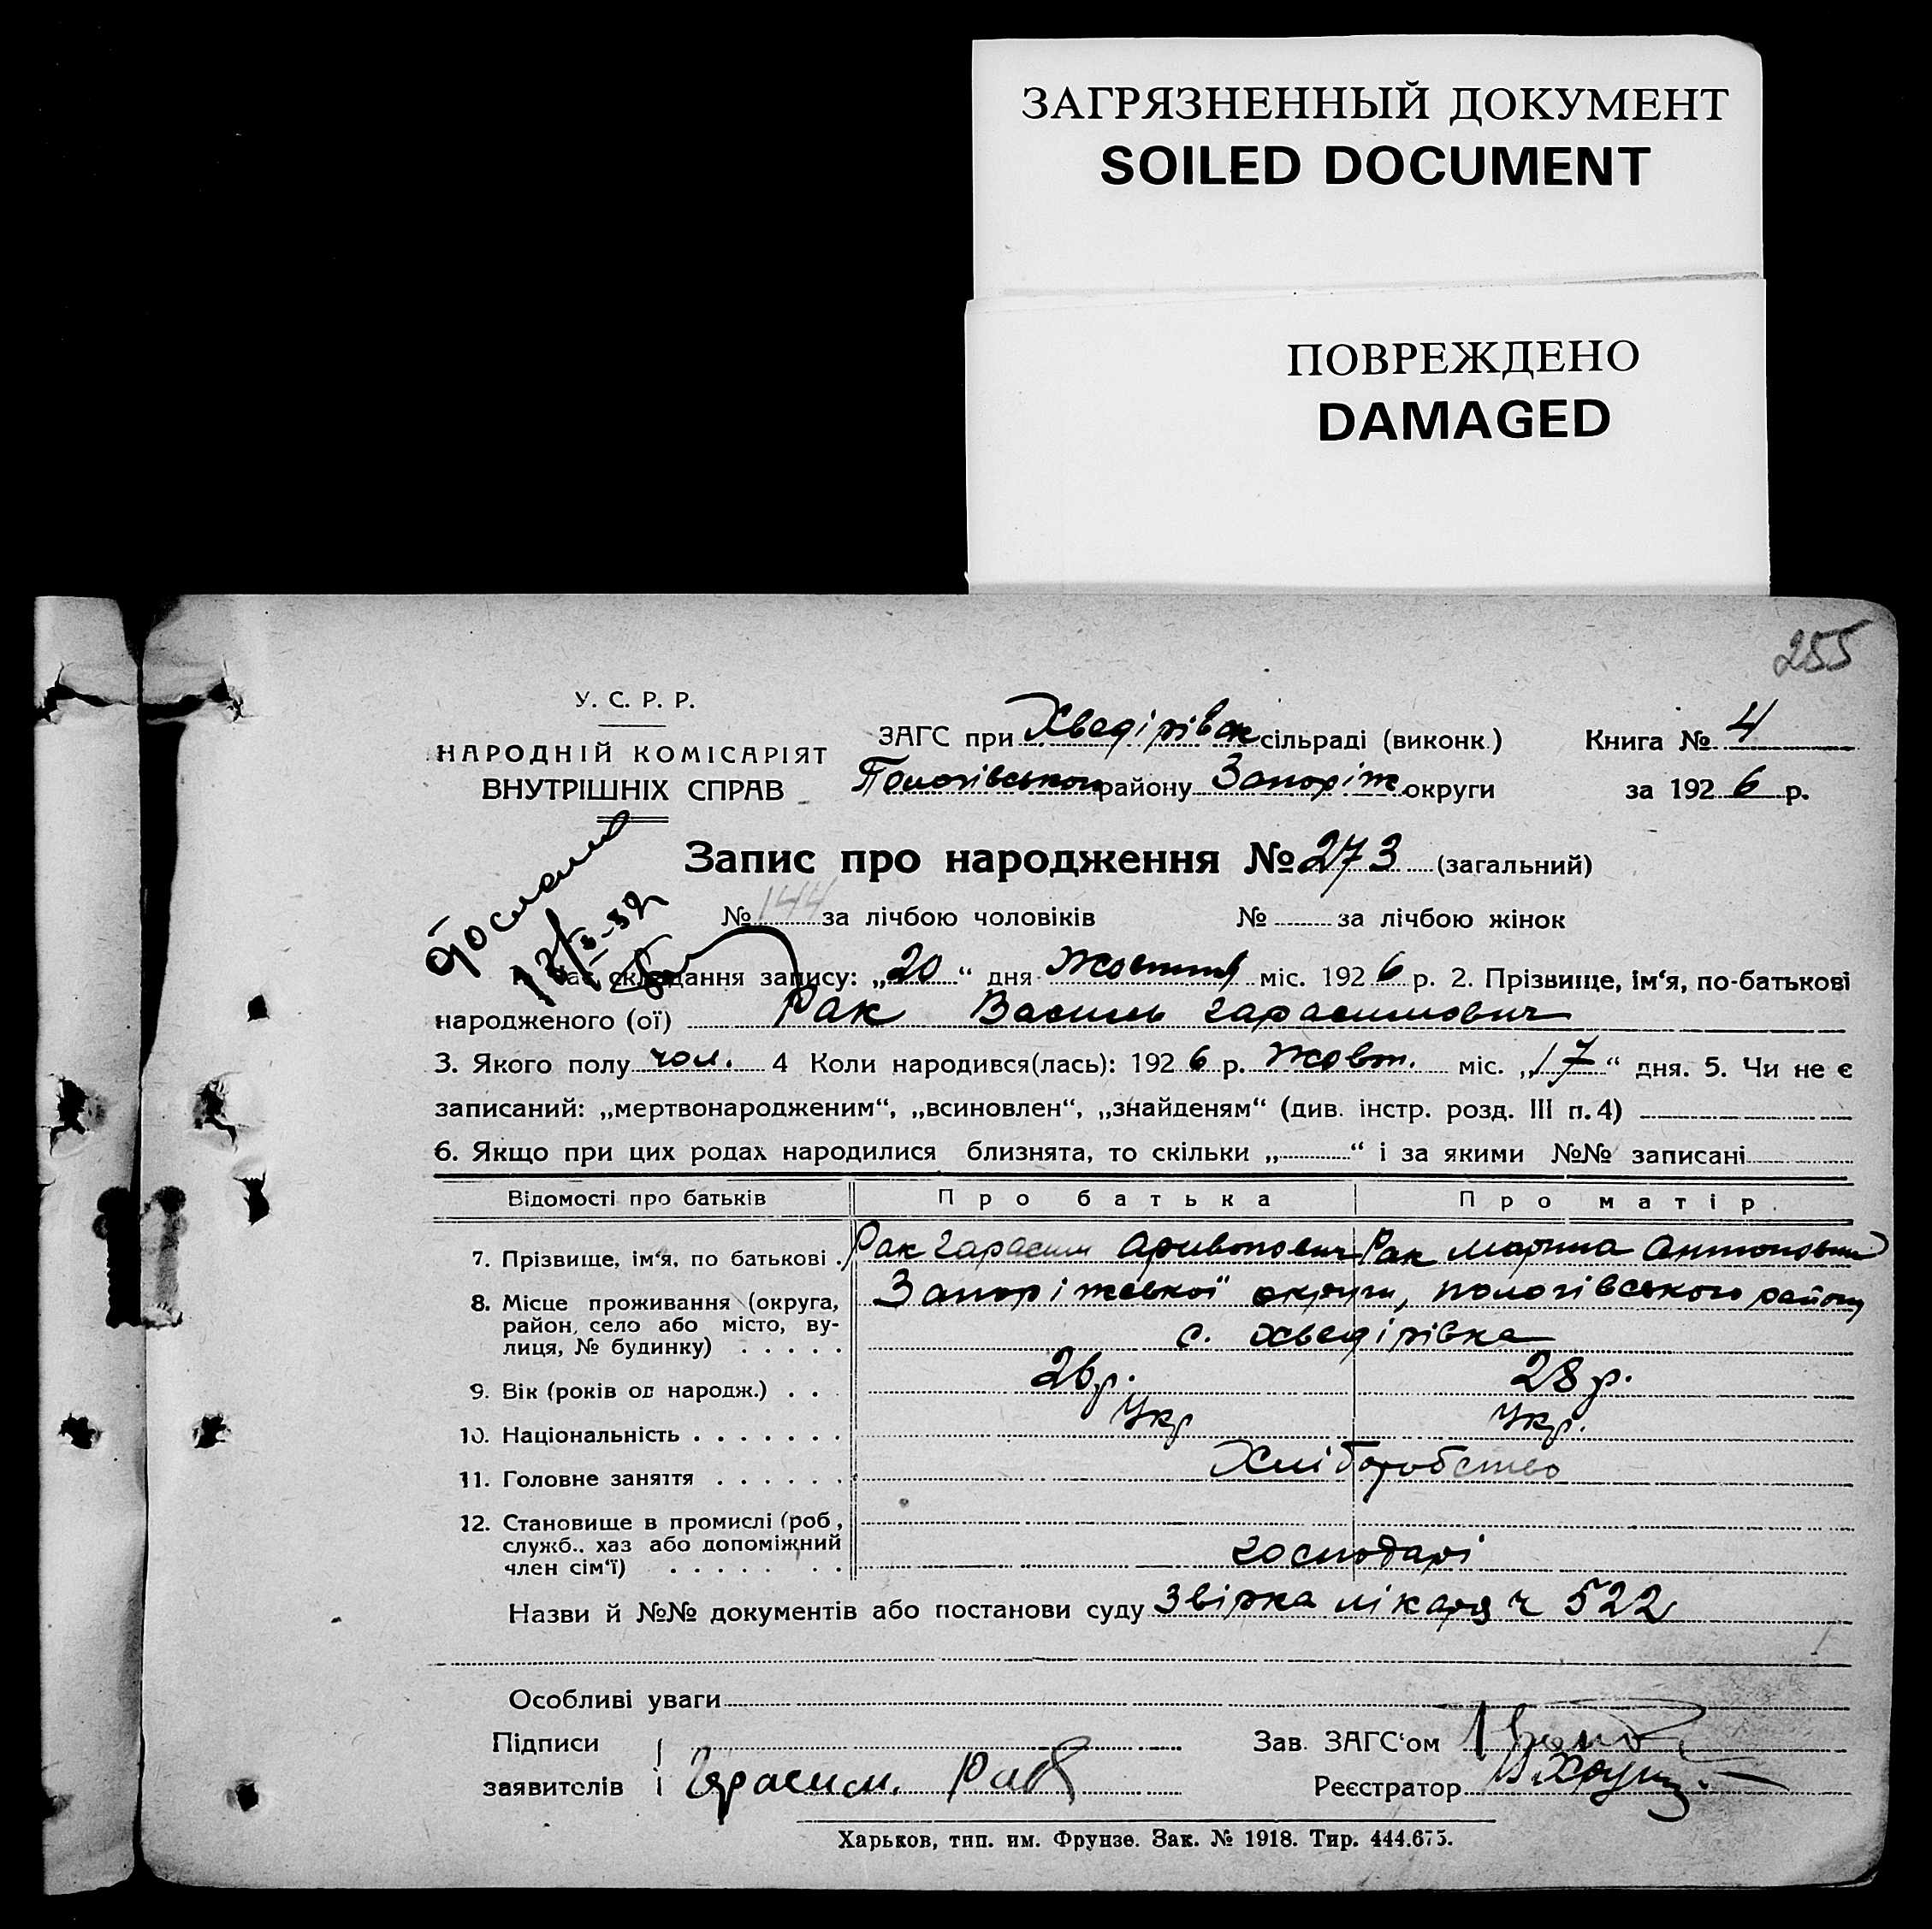 ЗАГРЯЗНЕННЫЙ ДОКУМЕНТ
SOILED DOCUMENT
ПОВРЕЖДЕНО
DAMAGED
255
У. С. Р. Р.
НАРОДНІЙ КОМІСАРІЯТ
ВНУТРІШНІХ СПРАВ
ЗАГС при Хведірівск сільраді (виконк.) Книга № 4
Пологівського району Запоріж округи за 1926 р.
Запис про народження № 273 (загальний)
№ 144 за лічбою чоловіків № за лічбою жінок
12/X-32
Час складання запису: „20“ дня Жовтня міс. 1926 р. 2. Прізвище, ім‘я, по-батькові
народженого (ої) Рак Василь Гарасимович
3. Якого полу чол. 4 Коли народився(лась): 1926 р. Жовт. міс. „17“ дня. 5. Чи не є
записаний: „мертвонародженим“, „всиновлен“, „знайденям“ (див. інстр. розд. III п. 4)
6. Якщо при цих родах народилися близнята, то скільки „ “ і за якими №№ записані
Відомості про батьків Про батька Про матір
7. Прізвище, ім‘я, по батькові . Рак Гарасим Рак Антоновна
8. Місце проживання (округа, Запоріжської округи, пологівського району
район, село або місто, ву-
лиця, № будинку) . . . . . с. Хведірівка
9. Вік (років од народж.) . . . 26 р. 28 р.
10. Національність . . . . . . . Укр Укр.
11. Головне заняття . . . . . . Хліборобство
12. Становище в промислі (роб,
служб., хаз або допоміжний
член сім‘ї) . . . . . . . господарі
Назви й №№ документів або постанови суду Звірка лікаря ч 522
Особливі уваги
Підписи Зав. ЗАГС‘ом
заявителів Гарасим Рак Реєстратор
Харьков, тип. им. Фрунзе. Зак. № 1918. Тир. 444.675.